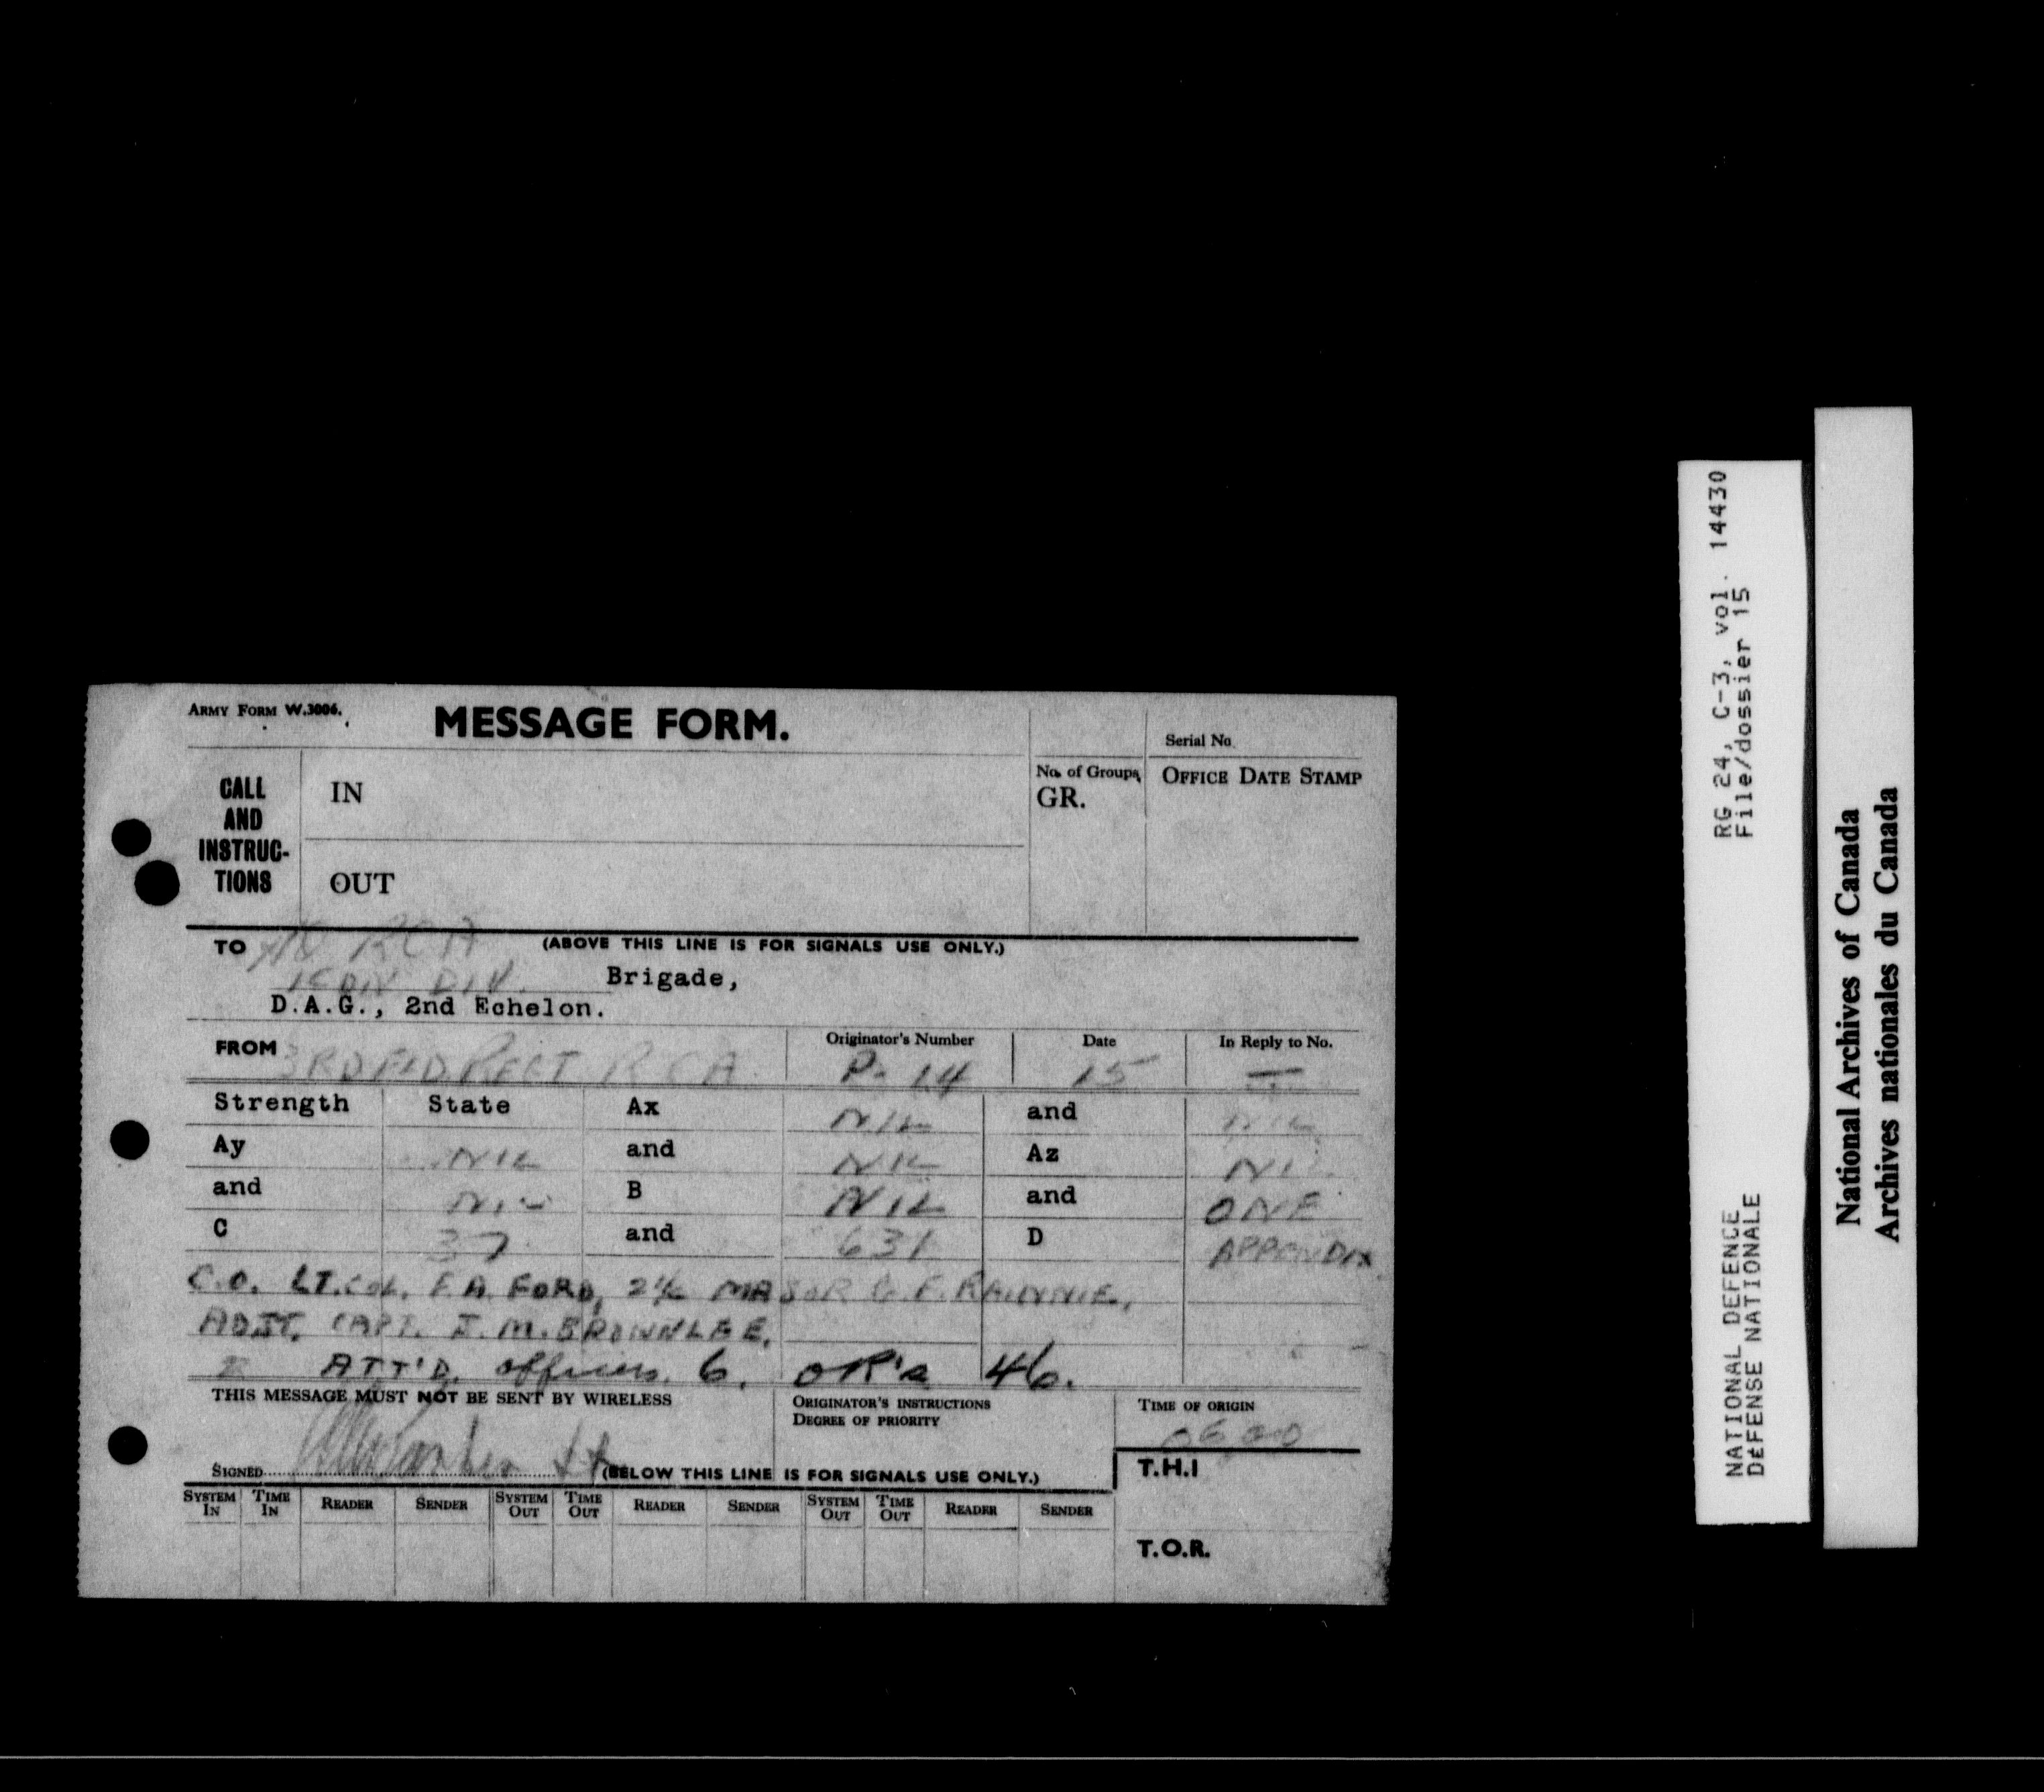 ARMY FORM W.3006.
MESSAGE FORM.
Serial No.
CALL AND INSTRUC-TIONS
IN
No. of Groups,
GR.
OFFICE DATE STAMP
OUT
TO RCA (ABOVE THIS LINE IS FOR SIGNALS USE ONLY.)
1 CDN DIV. Brigade,
D.A.G., 2nd Echelon.
FROM 3RD FLD REGT RCA
Originator's Number P. 14
Date 15
In Reply to No. —
Strength State Ax NIL and NIL
Ay NIL and NIL Az NIL
and NIL B NIL and ONE
C 37 and 631 D APPENDIX
C.O. LT.COL. F.A. FORD, 2 i/c MAJOR G.F. RAINNIE,
ADJT. CAPT. J.M. BROWNLEE,
E ATT'D. officers 6. OR's 46.
THIS MESSAGE MUST NOT BE SENT BY WIRELESS
ORIGINATOR'S INSTRUCTIONS
DEGREE OF PRIORITY
TIME OF ORIGIN
0600
SIGNED Lt
(BELOW THIS LINE IS FOR SIGNALS USE ONLY.)
T.H.I
SYSTEM IN TIME IN READER SENDER SYSTEM OUT TIME OUT READER SENDER SYSTEM OUT TIME OUT READER SENDER
T.O.R.
RG 24, C-3, vol. 14430
File/dossier 15
NATIONAL DEFENCE
DéFENSE NATIONALE
National Archives of Canada
Archives nationales du Canada